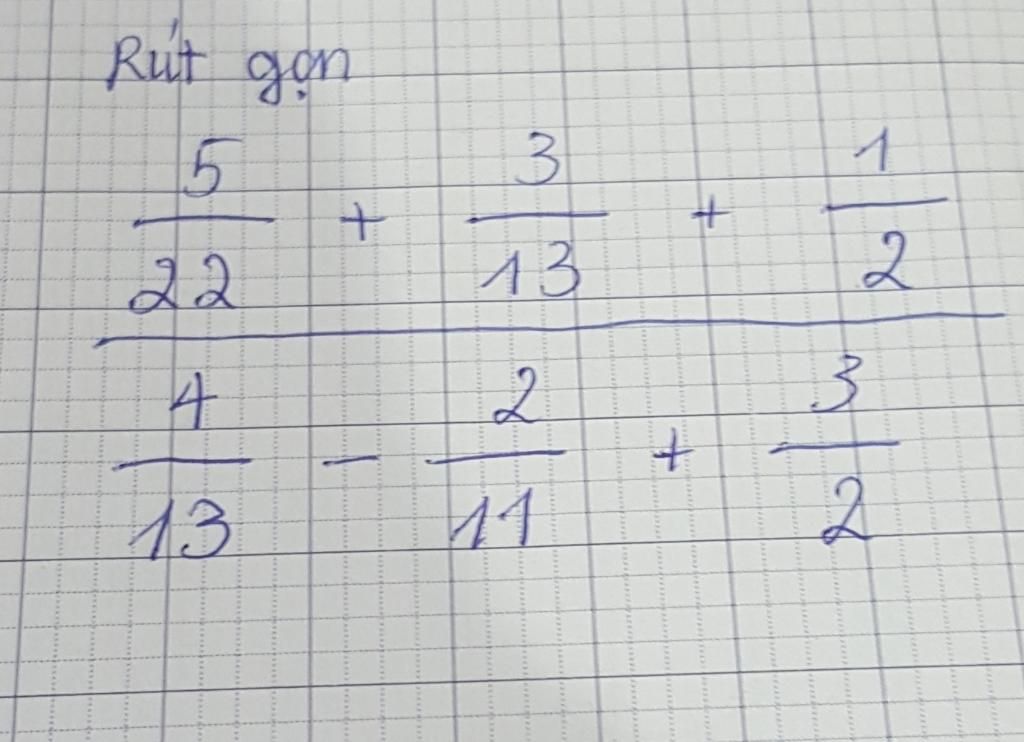 Rút gọn
5/22 + 3/13 + 1/2
4/13 - 2/11 + 3/2